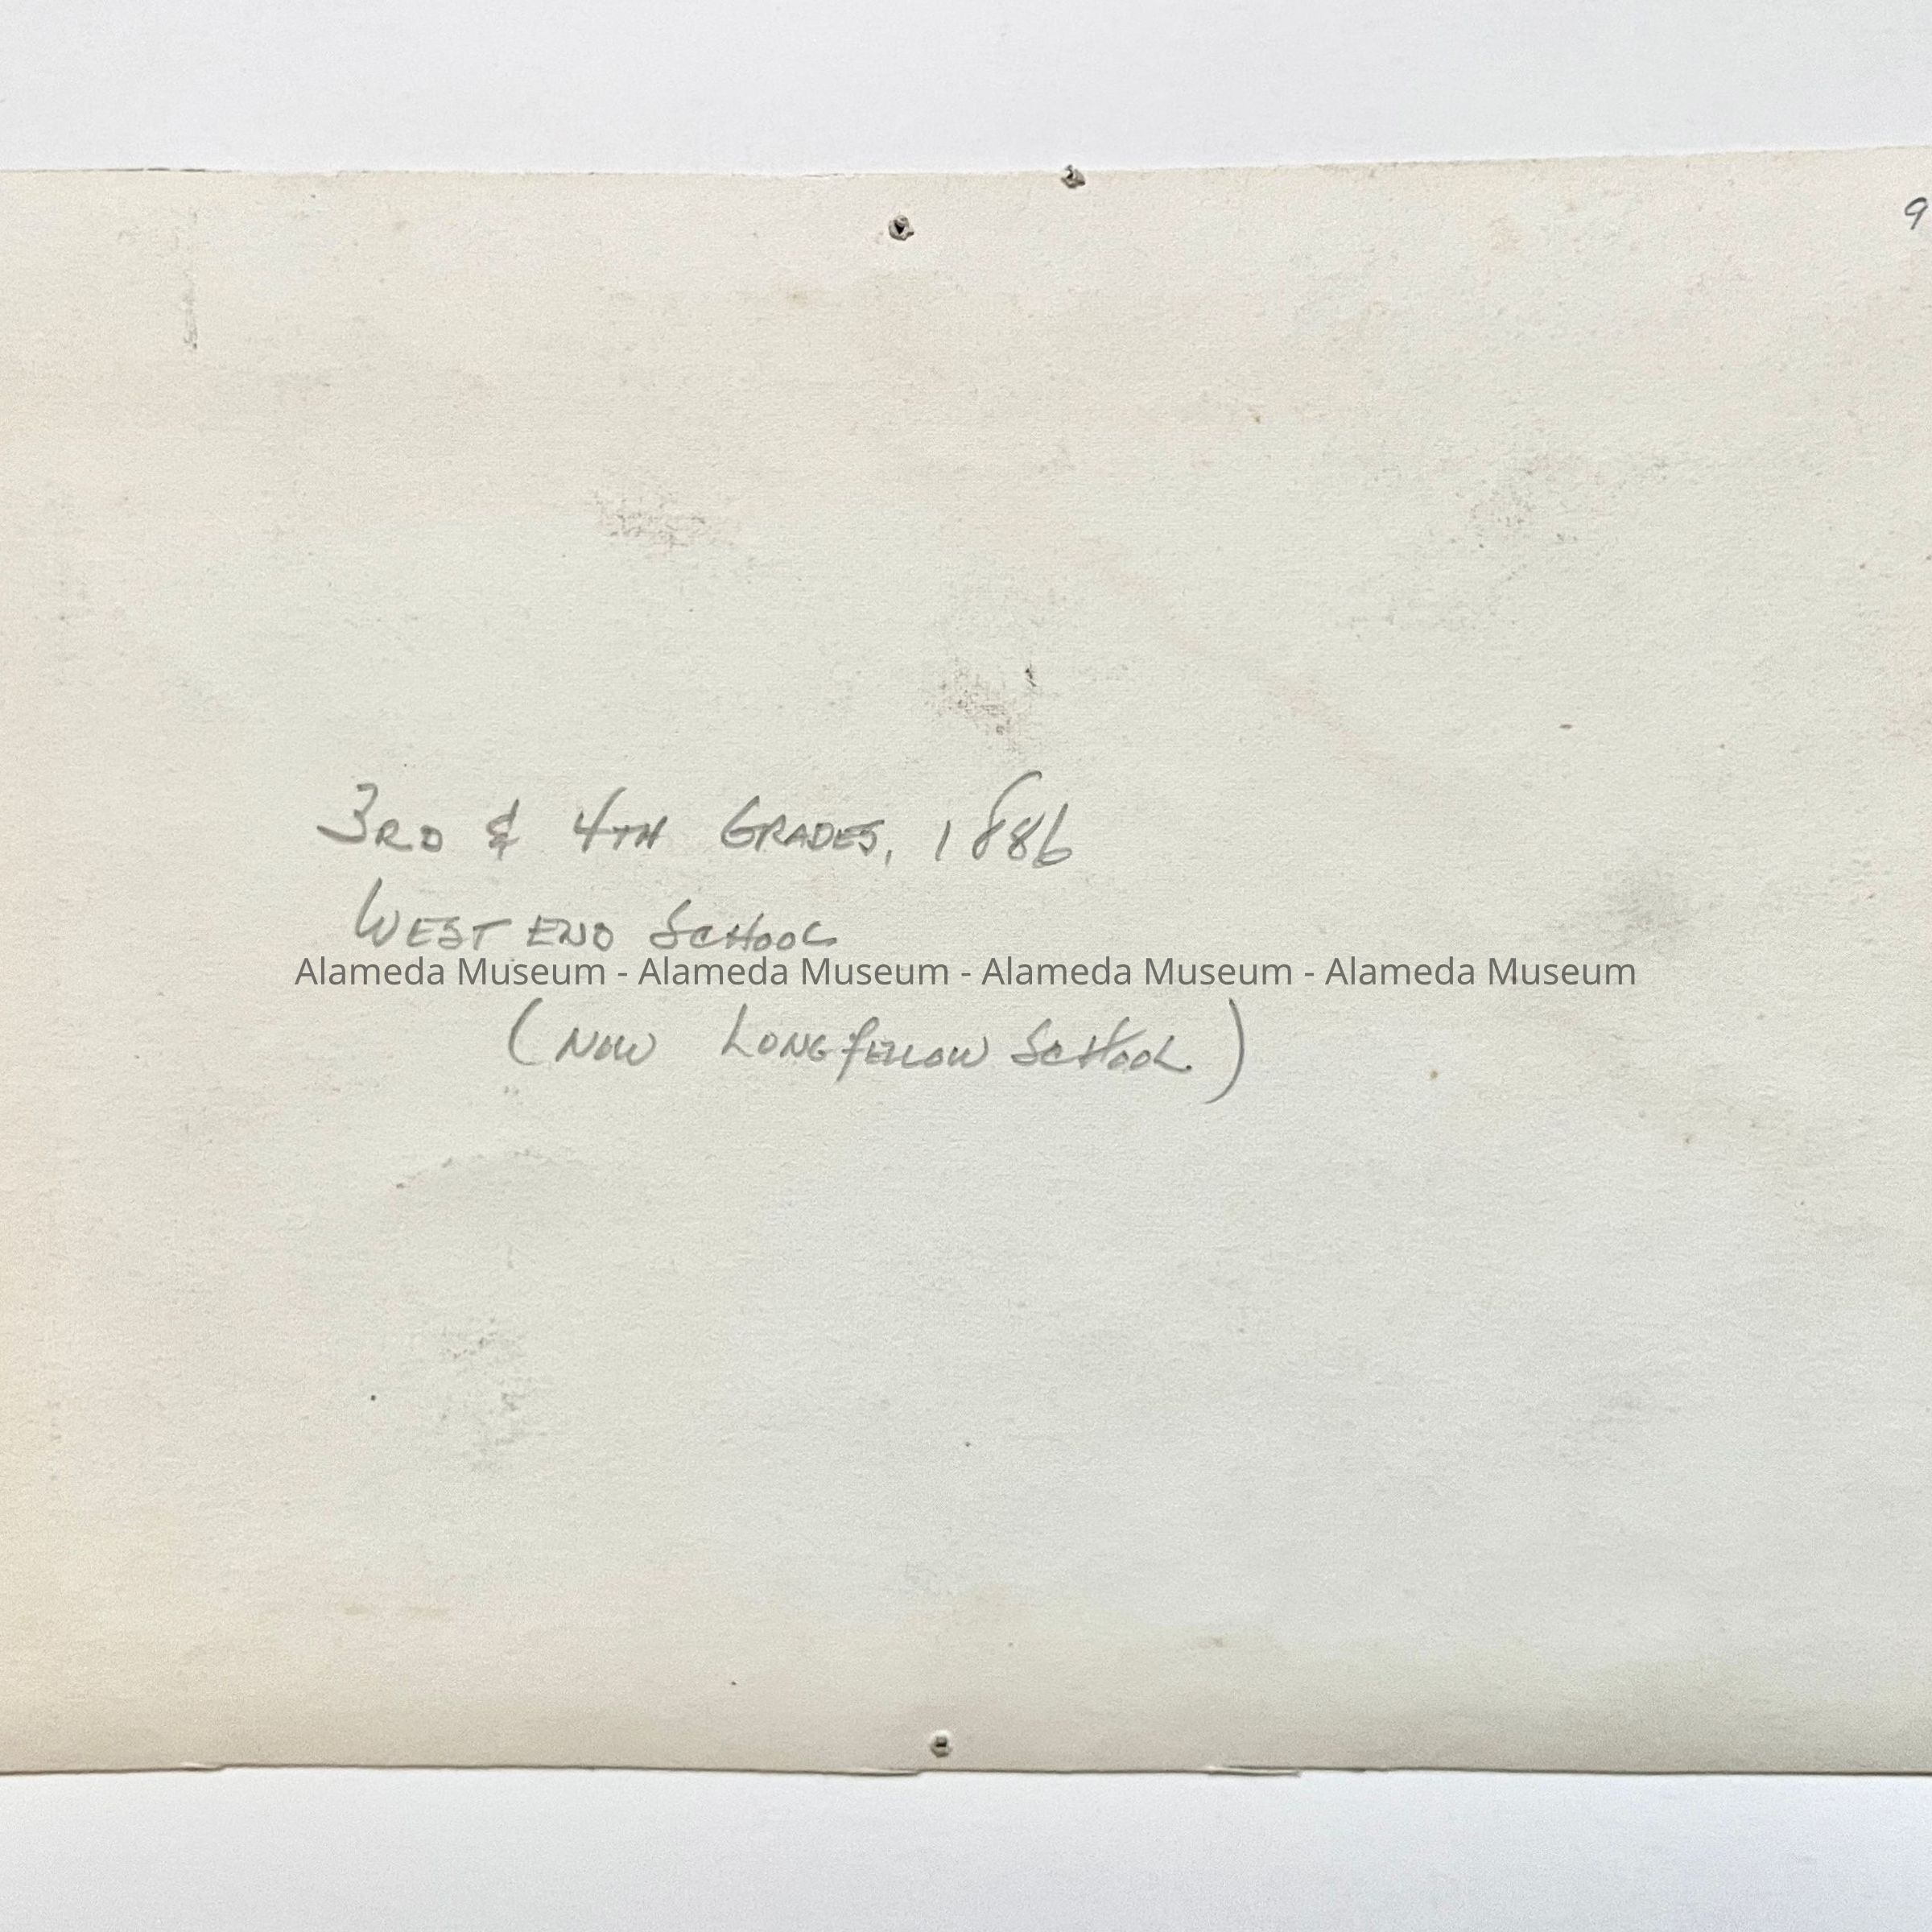 9
3RD & 4TH GRADES, 1886
WEST END SCHOOL
Alameda Museum - Alameda Museum - Alameda Museum - Alameda Museum
(NOW LONGFELLOW SCHOOL.)